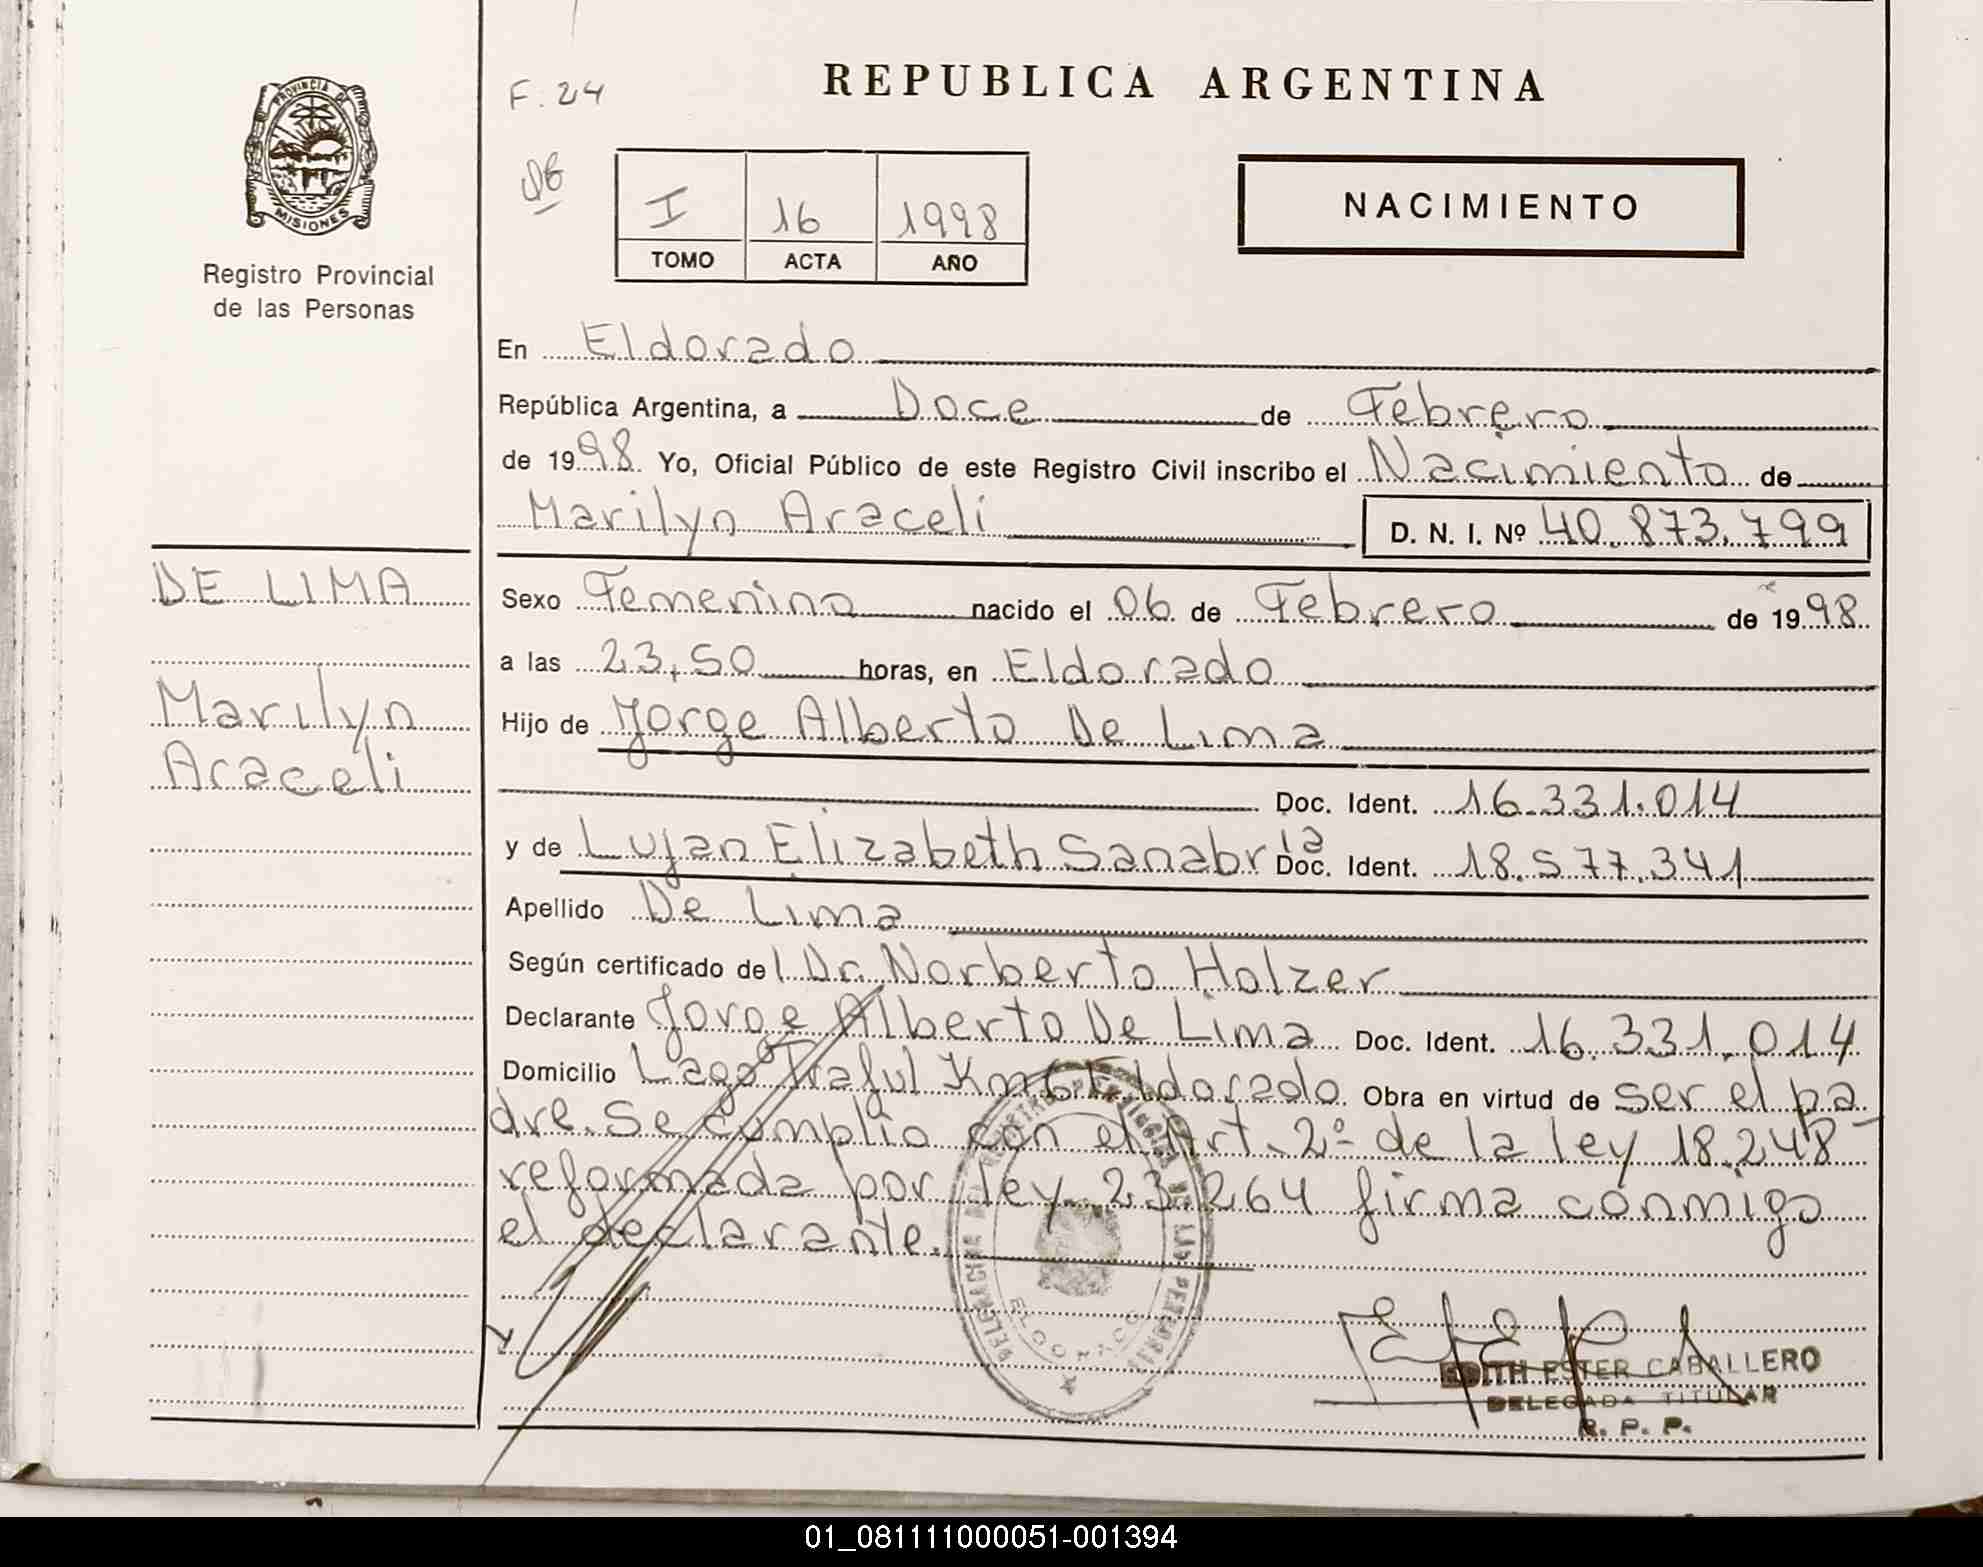 REPUBLICA ARGENTINA
F. 24
PROVINCIA DE
MISIONES
Registro Provincial
de las Personas
I 16 1998
TOMO ACTA AÑO
NACIMIENTO
En Eldorado
República Argentina, a Doce de Febrero
de 1998. Yo, Oficial Público de este Registro Civil inscribo el Nacimiento de
Marilyn Araceli D. N. I. Nº 40.873.799
DE LIMA
Marilyn
Araceli
Sexo Femenino nacido el 06 de Febrero de 1998
a las 23,50 horas, en Eldorado
Hijo de Jorge Alberto De Lima
Doc. Ident. 16.331.014
y de Lujan Elizabeth Sanabria Doc. Ident. 18.577.341
Apellido De Lima
Según certificado del Dr. Norberto Holzer
Declarante Jorge Alberto De Lima Doc. Ident. 16.331.014
Domicilio Lago Traful Km 6 Eldorado. Obra en virtud de ser el pa
dre. Se cumplio con el Art. 2º de la ley 18.248
reformada por ley 23.264 firma conmigo
el declarante.
DELEGACION DEL REGISTRO PROVINCIAL DE LAS PERSONAS
ELDORADO
EDITH ESTER CABALLERO
DELEGADA TITULAR
R. P. P.
01_081111000051-001394